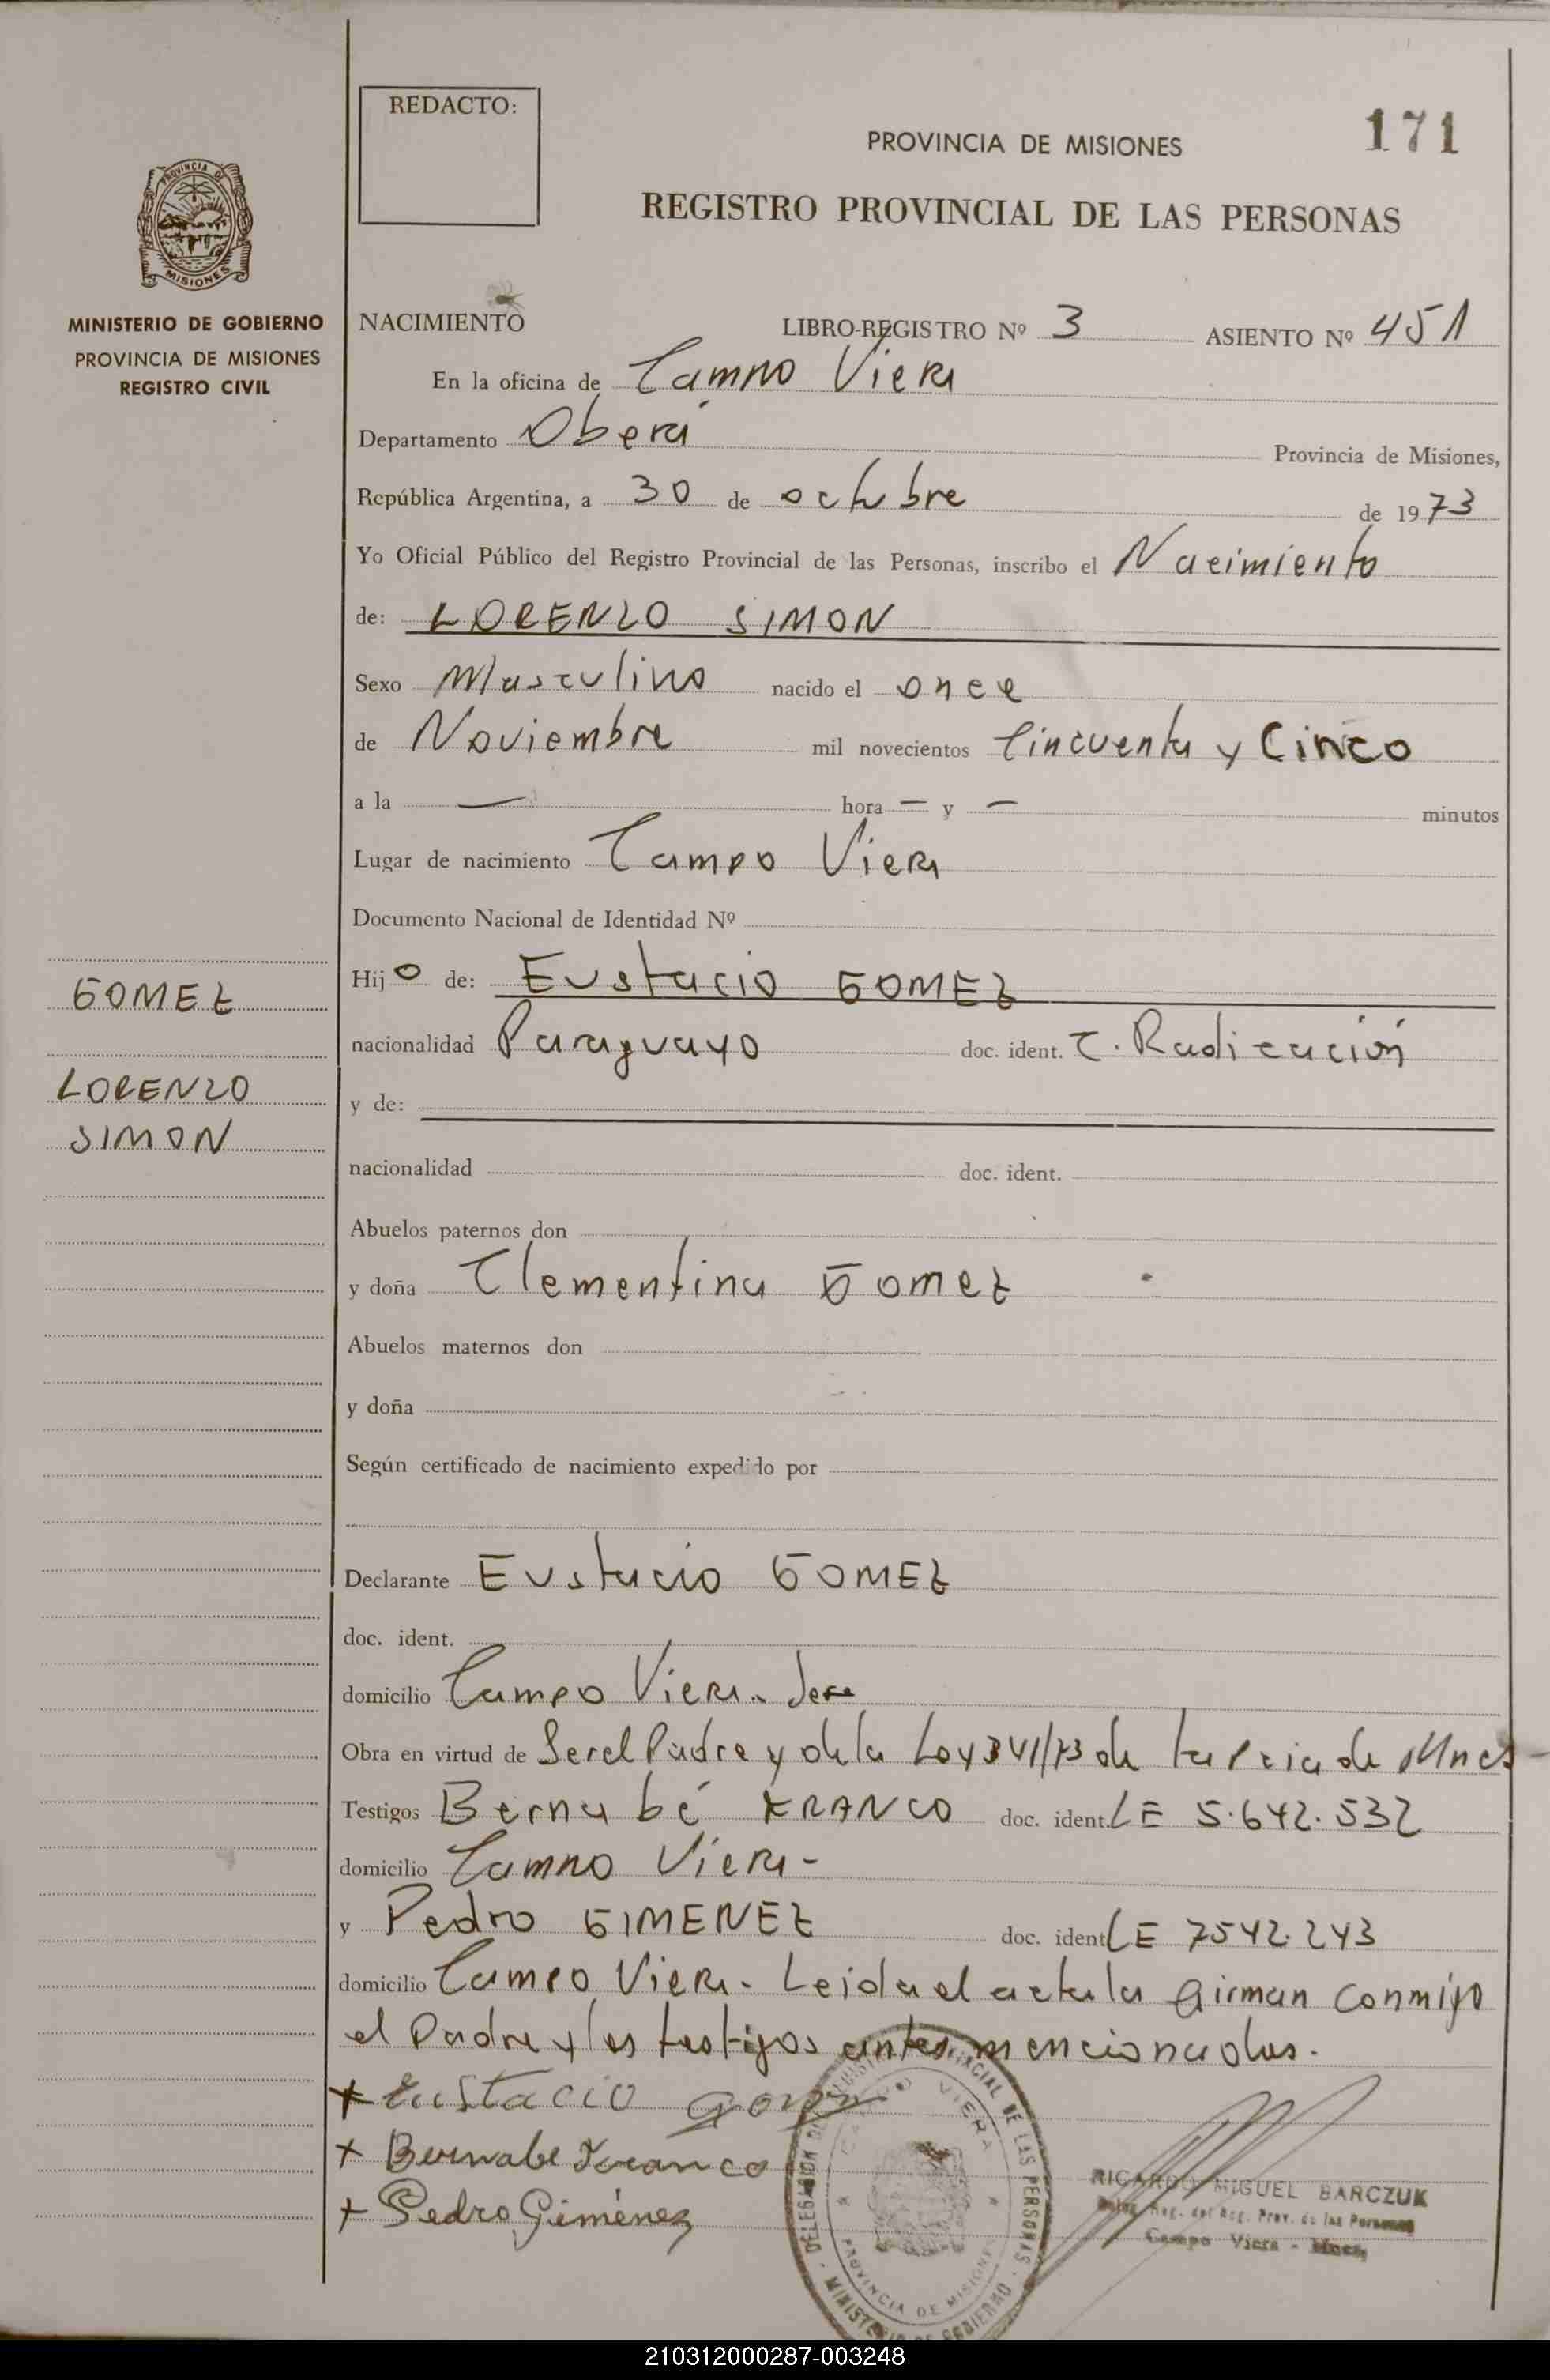 REDACTO:
171
PROVINCIA DE MISIONES
REGISTRO PROVINCIAL DE LAS PERSONAS
PROVINCIA DE
MISIONES
MINISTERIO DE GOBIERNO
PROVINCIA DE MISIONES
REGISTRO CIVIL
NACIMIENTO LIBRO-REGISTRO Nº 3 ASIENTO Nº 451
En la oficina de Campo Viera
Departamento Oberá Provincia de Misiones,
República Argentina, a 30 de octubre de 1973
Yo Oficial Público del Registro Provincial de las Personas, inscribo el Nacimiento
de: LORENZO SIMON
Sexo Masculino nacido el once
de Noviembre mil novecientos Cincuenta y Cinco
a la — hora — y — minutos
Lugar de nacimiento Campo Viera
Documento Nacional de Identidad Nº
Hijo de: Eustacio GOMEZ
nacionalidad Paraguayo doc. ident. C. Radicación
y de:
nacionalidad doc. ident.
Abuelos paternos don
y doña Clementina Gomez
Abuelos maternos don
y doña
Según certificado de nacimiento expedido por
Declarante Eustacio GOMEZ
doc. ident.
domicilio Campo Viera.
Obra en virtud de Ser el Padre y de la Ley de la Pcia de Mnes-
Testigos Bernabé FRANCO doc. ident. LE 5.642.532
domicilio Campo Viera-
y Pedro GIMENEZ doc. ident LE 7542.243
domicilio Campo Viera. Leida el acta la firman conmigo
el Padre y los testigos antes mencionados.
+ Eustacio
+ Bernabe Franco
+ Pedro Giménez
GOMEZ
LORENZO
SIMON
DELEGACION DEL REGISTRO PROVINCIAL DE LAS PERSONAS
CAMPO VIERA
PROVINCIA DE MISIONES
MINISTERIO DE GOBIERNO
RICARDO MIGUEL BARCZUK
Deleg. Reg. del Reg. Prov. de las Personas
Campo Viera - Mnes,
210312000287-003248